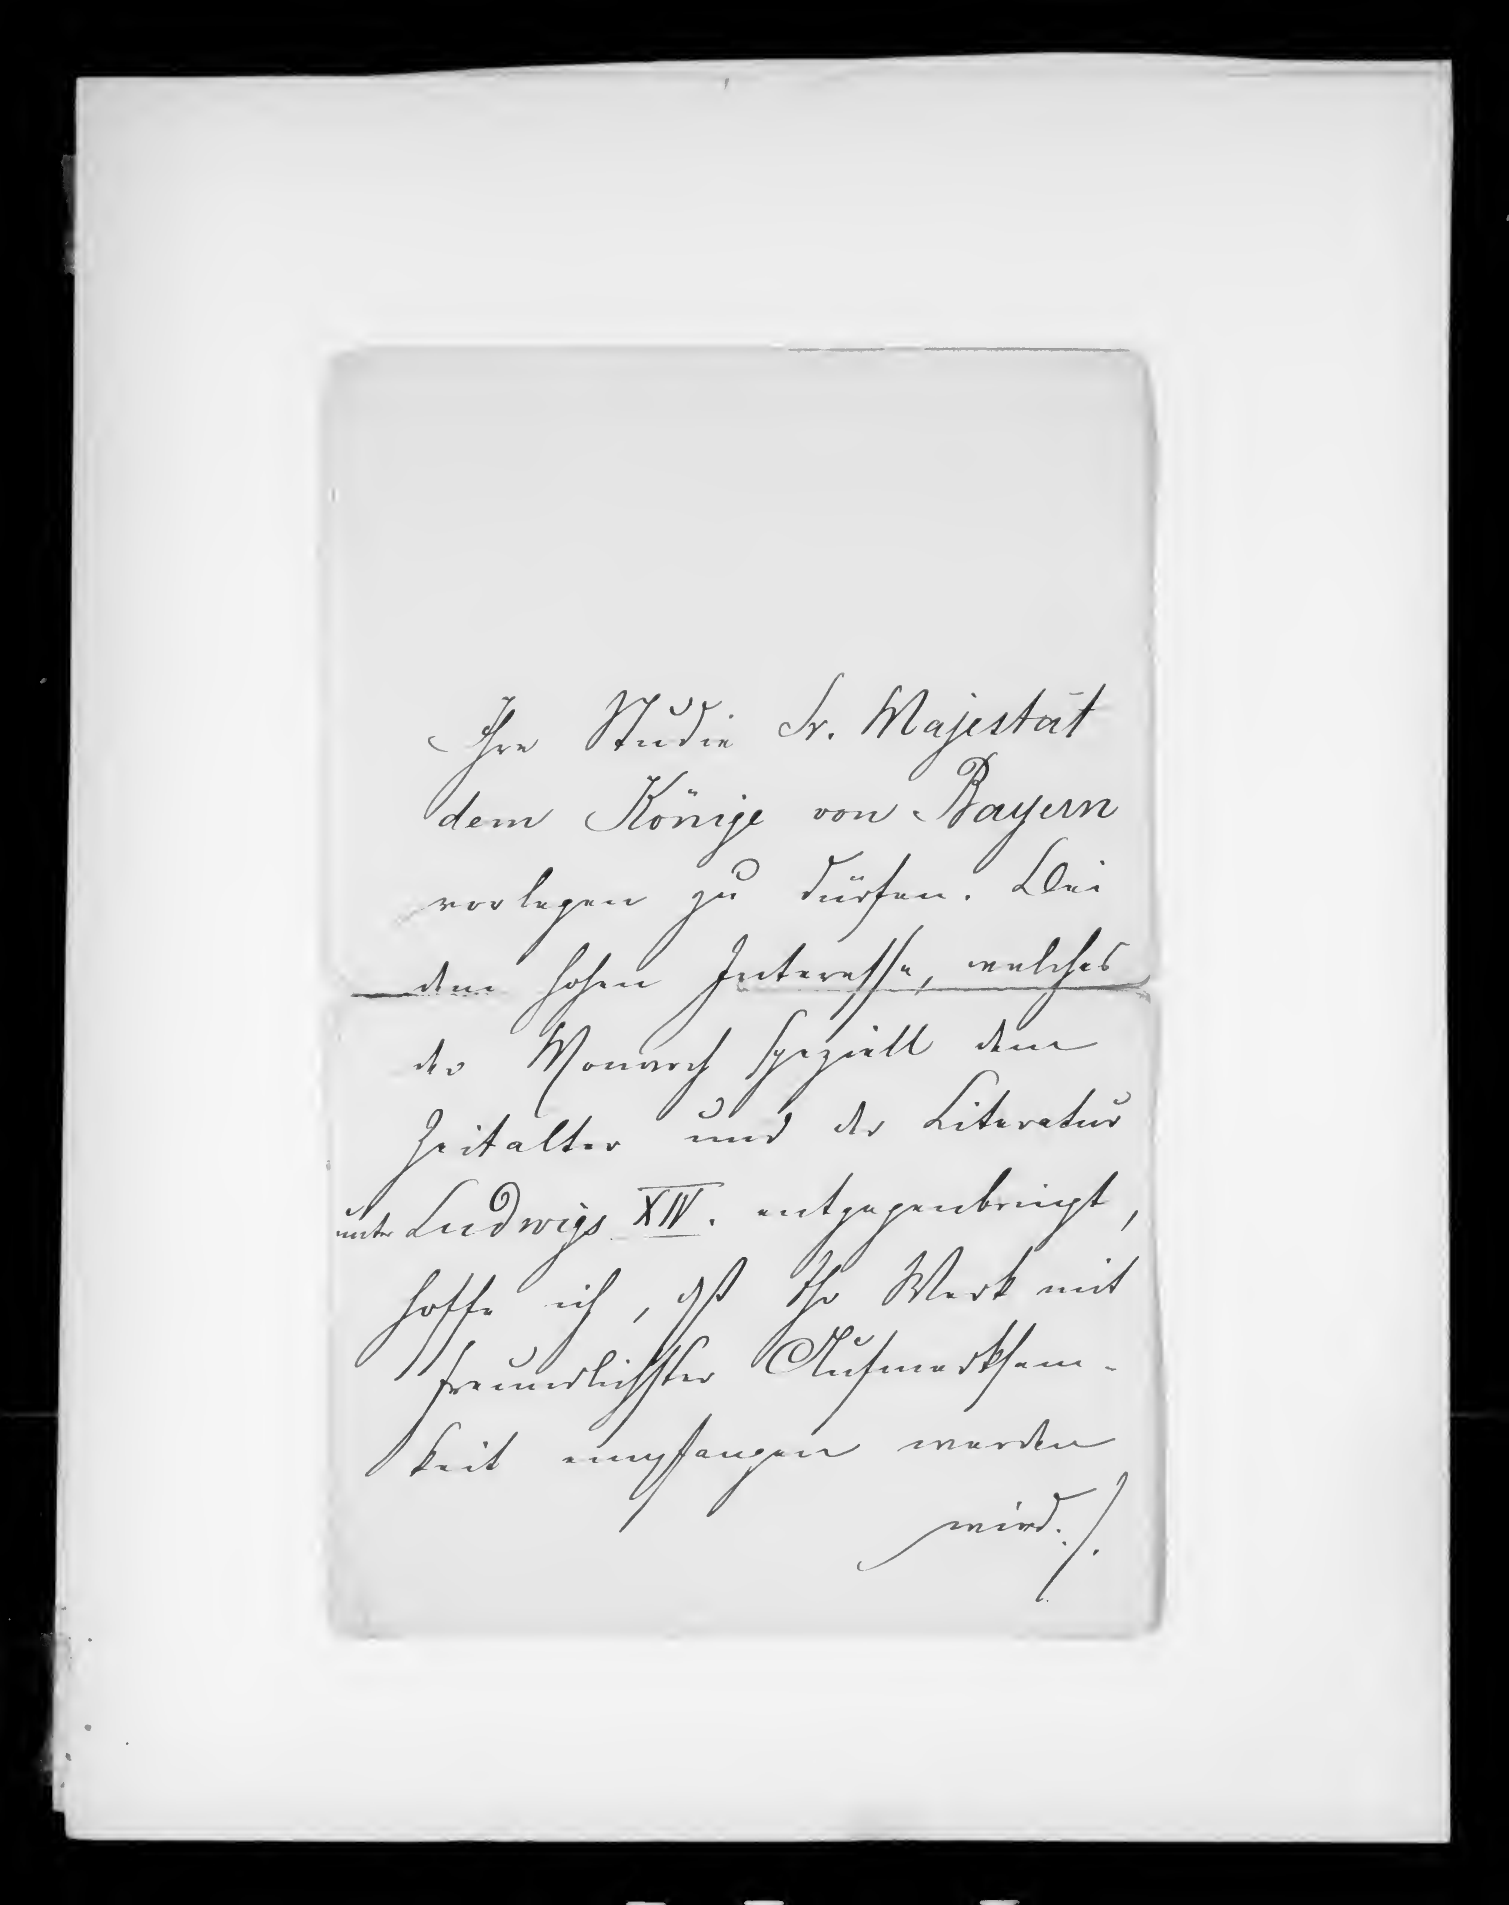 Ihre Studie Sr. Majestät
dem Könige von Bayern
vorlegen zu dürfen. Bei
dem hohen Interesse, welches
der Monarch speziell dem
Zeitalter und der Literatur
unter Ludwigs XIV. entgegenbringt,
hoffe ich, dß Ihr Werk mit
freundlichster Aufmerksam-
keit empfangen werden
wird. /.